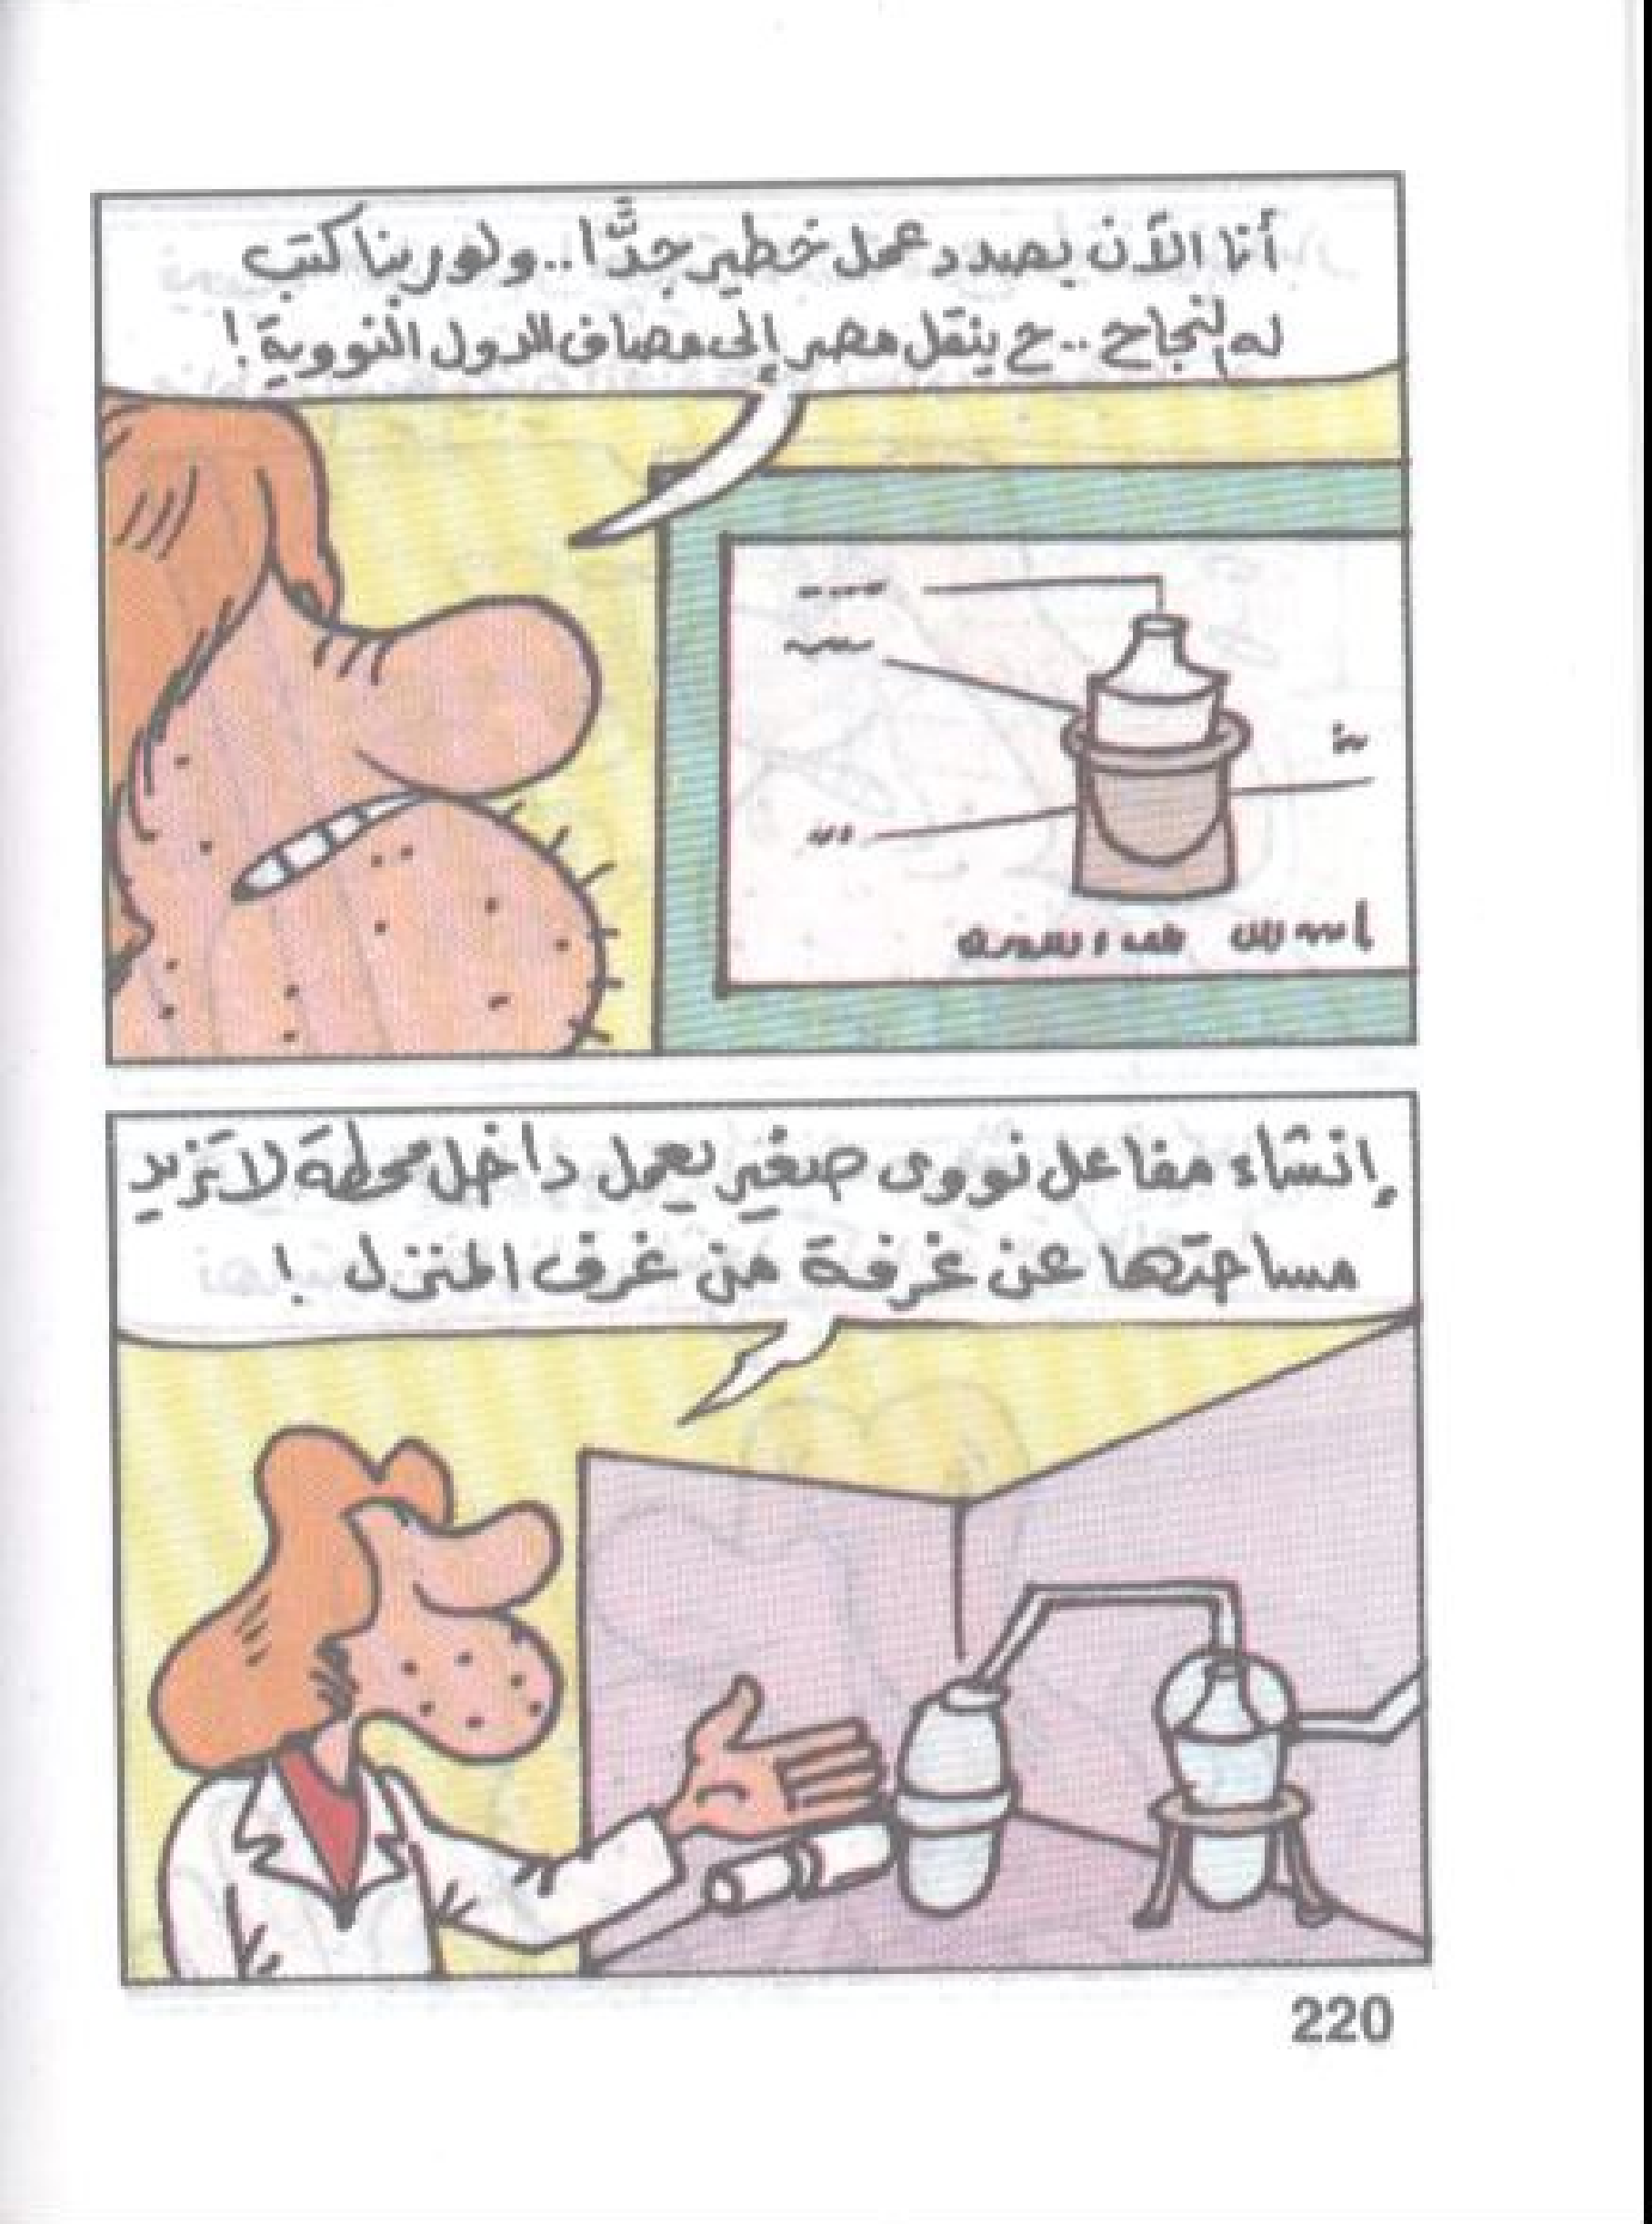 أنا الآن بصدد عمل خطير جدًّا.. ولو ربنا كتب
له النجاح.. ح ينقل مصر إلى مصاف الدول النووية!
إنشاء مفاعل نووى صغير يعمل داخل محطة لا تزيد
مساحتها عن غرفة من غرف المنزل!
220